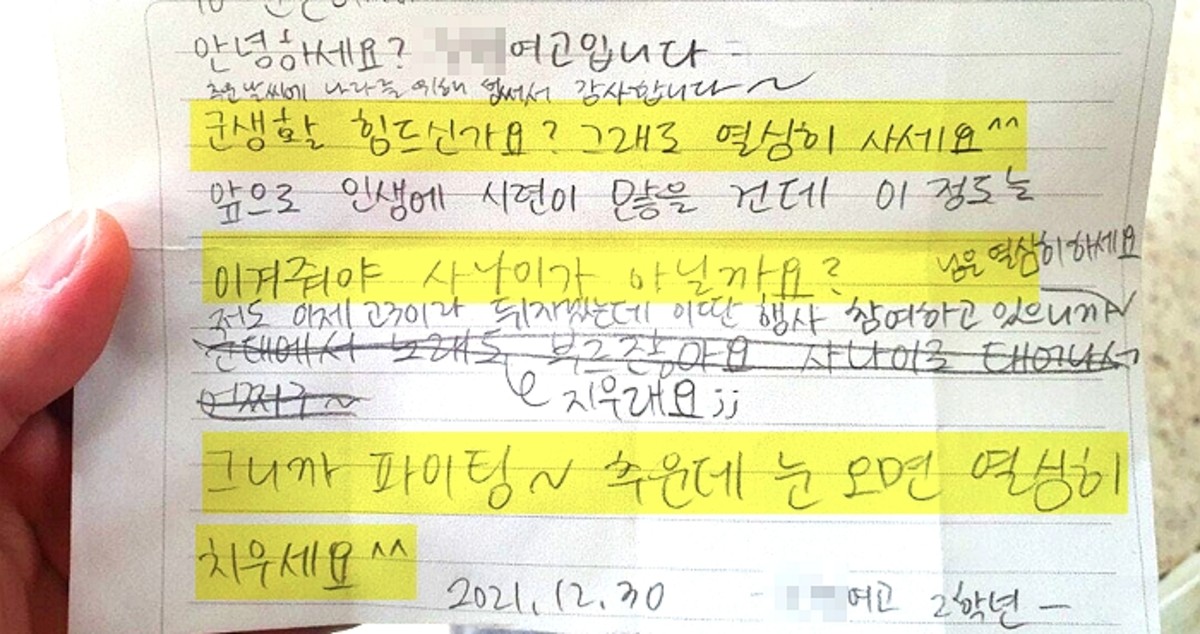 안녕하세요? 여고입니다
추운 날씨에 나라를 위해 힘써서 감사합니다~
군생활 힘드신가요? 그래도 열심히 사세요^^
앞으로 인생에 시련이 많을 건데 이 정도는
이겨줘야 사나이가 아닐까요?
저도 이제 고3이라 뒤지겠는데 이딴 행사 참여하고 있으니까
님은 열심히 하세요~
군대에서 노래도 부르잖아요 사나이로 태어나서
어쩌구~
지우래요;;
그니까 파이팅~ 추운데 눈 오면 열심히
치우세요^^
2021.12.30 - 여고 2학년 -